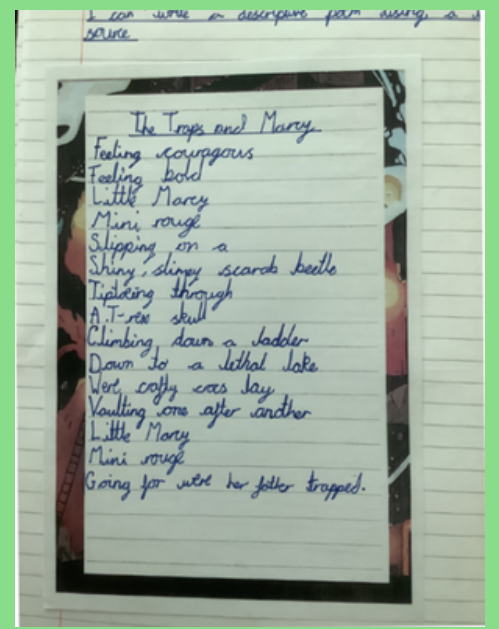 I can write a descriptive poem using a
source
The Traps and Marcy
Feeling couragous
Feeling bold
Little Marcy
Mini rouge
Slipping on a
Shiny, slimey scarab beetle
Tiptoeing through
A T-rex skull
Climbing down a ladder
Down to a lethal lake
Were crafty crocs lay
Vaulting one after another
Little Marcy
Mini rouge
Going for were her father trapped.